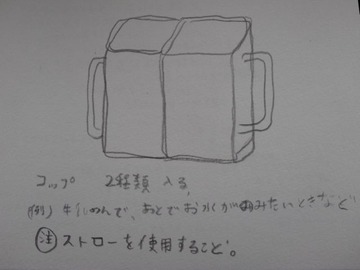 コップ 2種類 入る。
(例) 牛乳のんで、あとでお水がのみたいときなど
㊟ストローを使用すること。